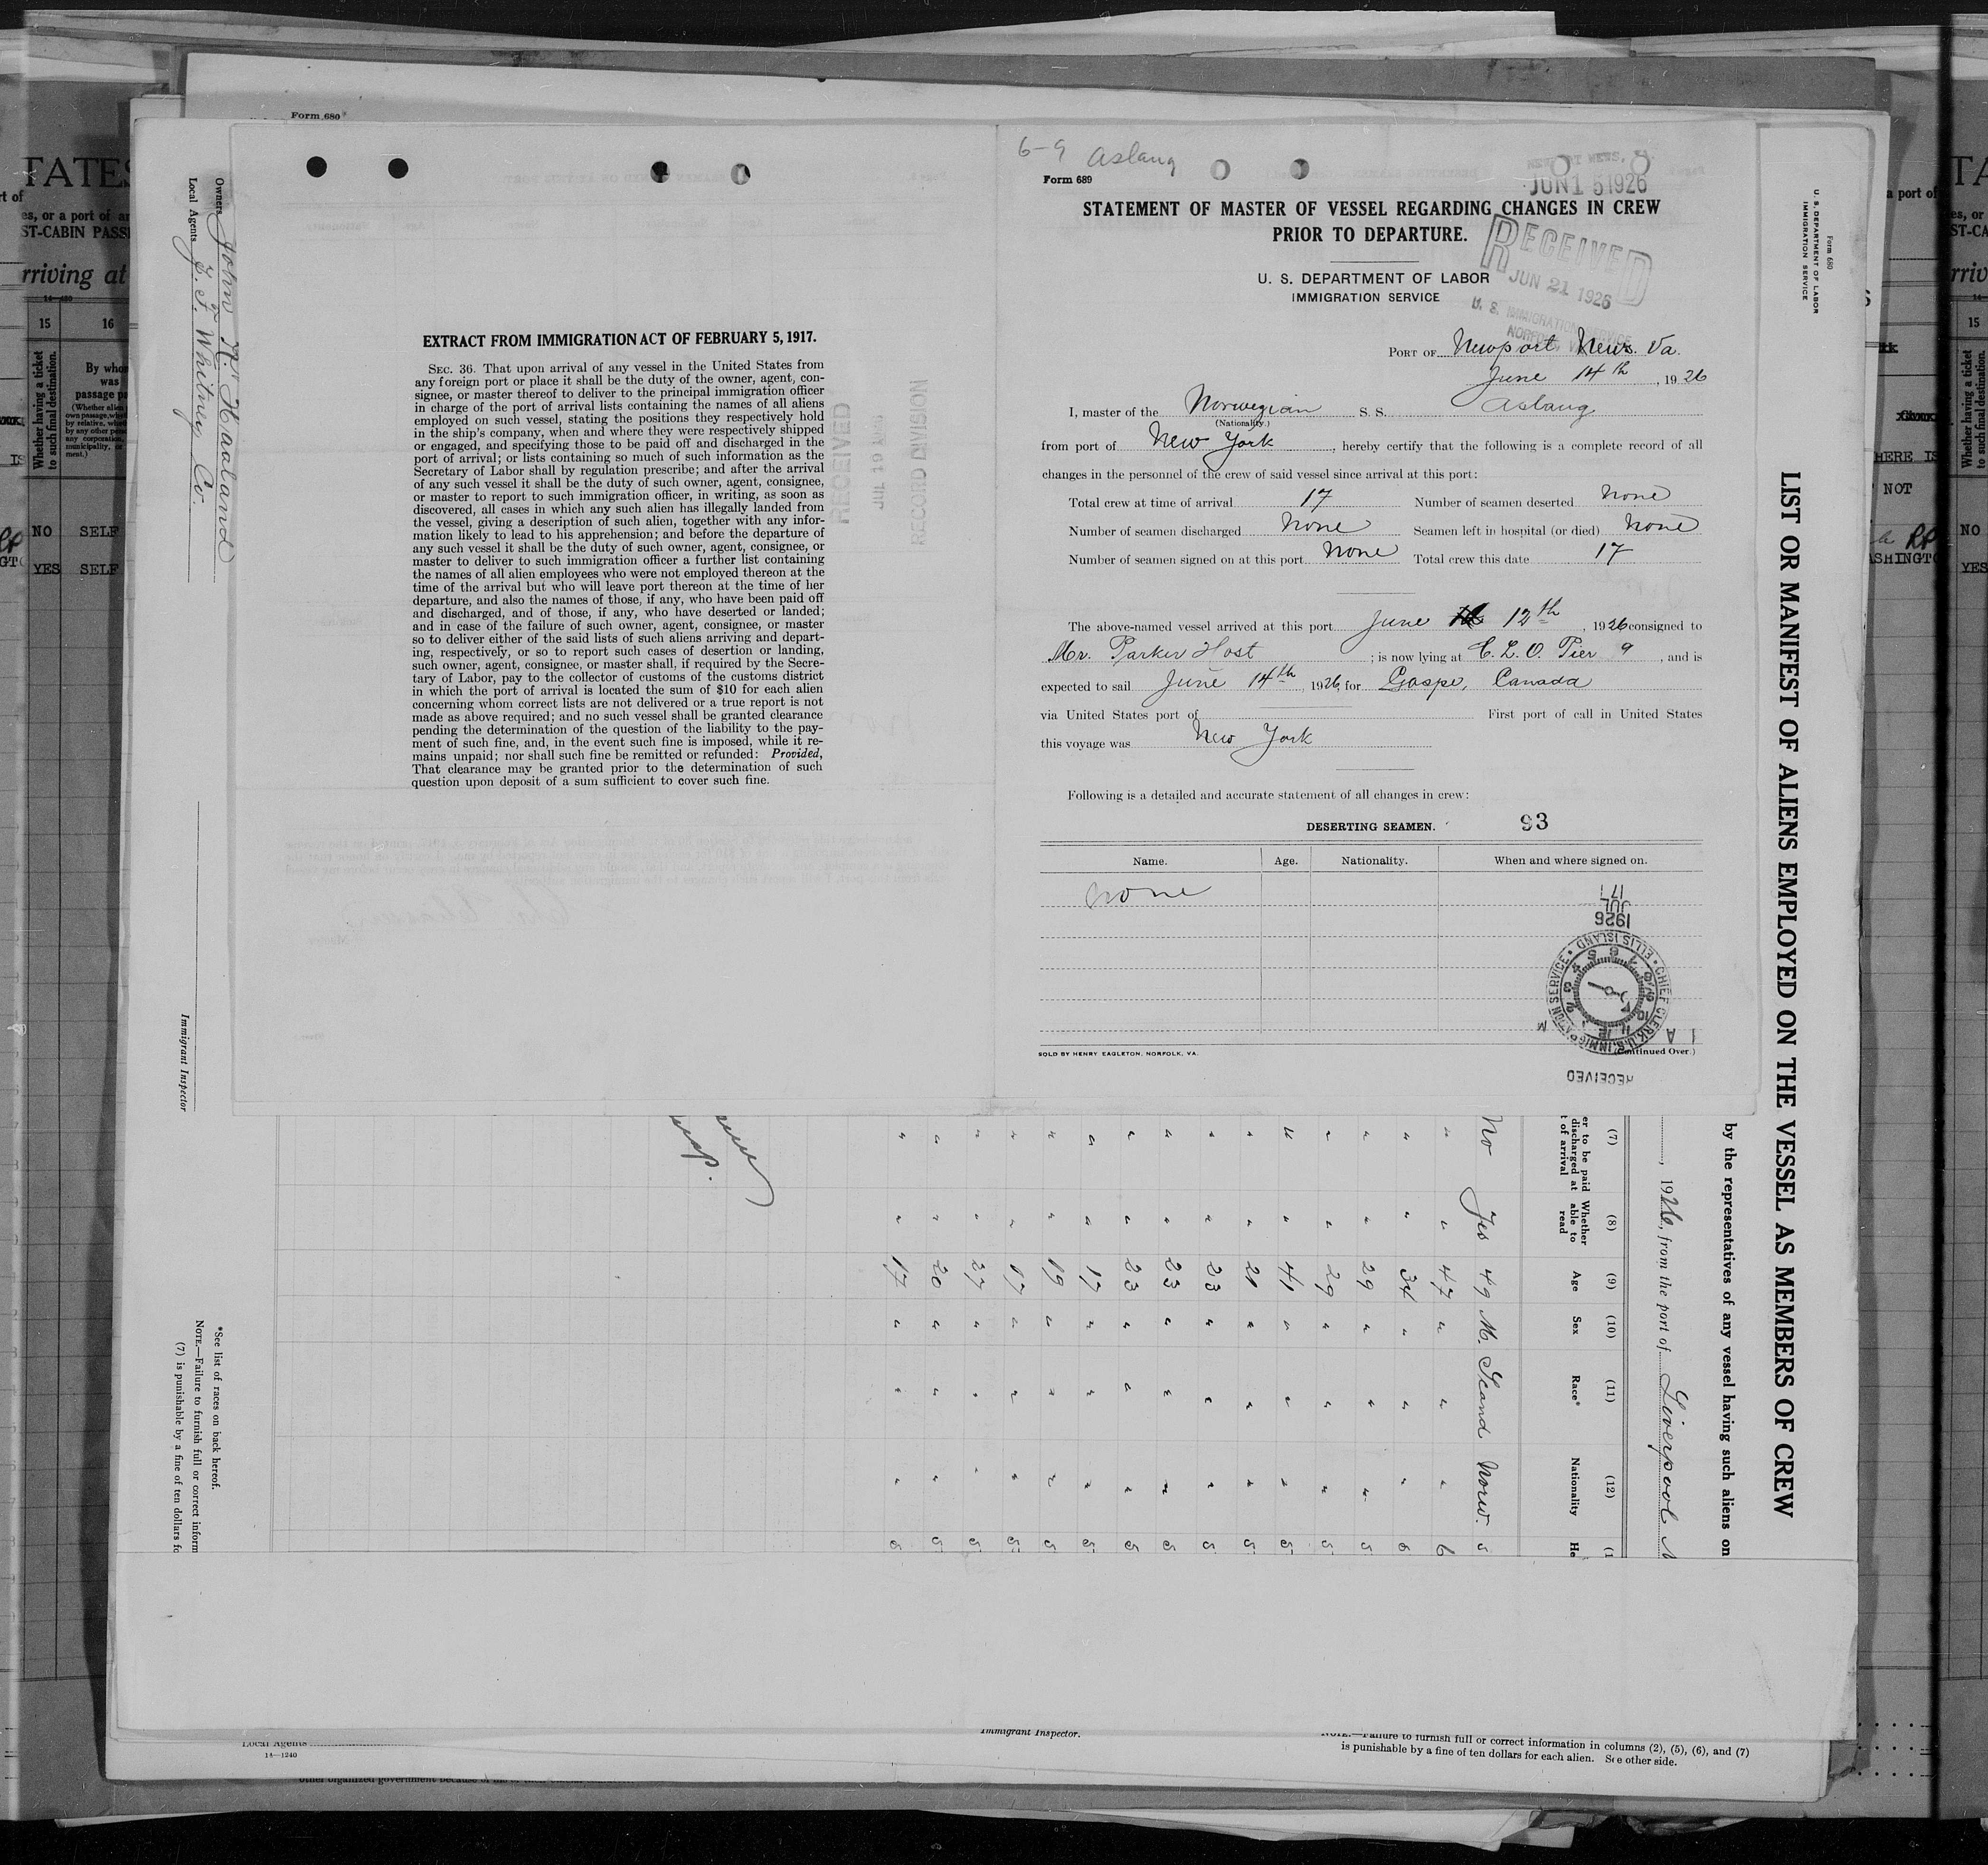 6-9 Aslaug
Form 689
JUN 15 1926
STATEMENT OF MASTER OF VESSEL REGARDING CHANGES IN CREW
PRIOR TO DEPARTURE.
U. S. DEPARTMENT OF LABOR
IMMIGRATION SERVICE
RECEIVED
JUN 21 1926
U. S. IMMIGRATION SERVICE
NORFOLK, VA.
PORT OF Newport News. Va.
June 14th, 1926
I, master of the Norwegian S. S. Aslaug
(Nationality.)
from port of New York, hereby certify that the following is a complete record of all
changes in the personnel of the crew of said vessel since arrival at this port:
Total crew at time of arrival 17 Number of seamen deserted None
Number of seamen discharged None Seamen left in hospital (or died) None
Number of seamen signed on at this port None Total crew this date 17
The above-named vessel arrived at this port June 12th, 1926 consigned to
Mr. Parker Host ; is now lying at C. & O. Pier 9, and is
expected to sail June 14th, 1926, for Gaspe, Canada
via United States port of First port of call in United States
this voyage was New York
Following is a detailed and accurate statement of all changes in crew:
DESERTING SEAMEN. 93
Name. Age. Nationality. When and where signed on.
None
17
JUL
1926
CHIEF CLERK U. S. IMMIGRATION SERVICE ELLIS ISLAND
RECEIVED
SOLD BY HENRY EAGLETON, NORFOLK, VA.
(Continued Over.)
EXTRACT FROM IMMIGRATION ACT OF FEBRUARY 5, 1917.
SEC. 36. That upon arrival of any vessel in the United States from
any foreign port or place it shall be the duty of the owner, agent, con-
signee, or master thereof to deliver to the principal immigration officer
in charge of the port of arrival lists containing the names of all aliens
employed on such vessel, stating the positions they respectively hold
in the ship's company, when and where they were respectively shipped
or engaged, and specifying those to be paid off and discharged in the
port of arrival; or lists containing so much of such information as the
Secretary of Labor shall by regulation prescribe; and after the arrival
of any such vessel it shall be the duty of such owner, agent, consignee,
or master to report to such immigration officer, in writing, as soon as
discovered, all cases in which any such alien has illegally landed from
the vessel, giving a description of such alien, together with any infor-
mation likely to lead to his apprehension; and before the departure of
any such vessel it shall be the duty of such owner, agent, consignee, or
master to deliver to such immigration officer a further list containing
the names of all alien employees who were not employed thereon at the
time of the arrival but who will leave port thereon at the time of her
departure, and also the names of those, if any, who have been paid off
and discharged, and of those, if any, who have deserted or landed;
and in case of the failure of such owner, agent, consignee, or master
so to deliver either of the said lists of such aliens arriving and depart-
ing, respectively, or so to report such cases of desertion or landing,
such owner, agent, consignee, or master shall, if required by the Secre-
tary of Labor, pay to the collector of customs of the customs district
in which the port of arrival is located the sum of $10 for each alien
concerning whom correct lists are not delivered or a true report is not
made as above required; and no such vessel shall be granted clearance
pending the determination of the question of the liability to the pay-
ment of such fine, and, in the event such fine is imposed, while it re-
mains unpaid; nor shall such fine be remitted or refunded: Provided,
That clearance may be granted prior to the determination of such
question upon deposit of a sum sufficient to cover such fine.
RECEIVED
JUL 19 1926
RECORD DIVISION
Form 680
Form 680
U. S. DEPARTMENT OF LABOR
IMMIGRATION SERVICE
LIST OR MANIFEST OF ALIENS EMPLOYED ON THE VESSEL AS MEMBERS OF CREW
by the representatives of any vessel having such aliens on
, 1926, from the port of Liverpool
(7) (8) (9) (10) (11) (12)
er to be paid
discharged at
t of arrival
Whether
able to
read
Age Sex Race* Nationality He
No Yes 49 M. Scand Norw. 5
" " 47 " " " 6
" " 34 " " " 6
" " 29 " " " 5
" " 29 " " " 5
" " 41 " " " 5
" " 21 " " " 5
" " 23 " " " 5
" " 23 " " " 5
" " 23 " " " 5
" " 17 " " " 5
" " 19 " " " 5
" " 17 " " " 5
" " 27 " " " 5
" " 20 " " " 5
" " 17 " " " 6
Owners John K. Haaland
Local Agents J. F. Whitney Co.
Immigrant Inspector
*See list of races on back hereof.
NOTE.—Failure to furnish full or correct inform
(7) is punishable by a fine of ten dollars fo
Local Agents
14—1240
Immigrant Inspector.
NOTE.—Failure to furnish full or correct information in columns (2), (5), (6), and (7)
is punishable by a fine of ten dollars for each alien. See other side.
TATES
rt of
es, or a port of
ST-CABIN PASS
rriving at
14—480
15 16
Whether having a ticket
to such final destination.
By who
was
passage p
NO SELF
YES SELF
TA
a port of
es, or
ST-CA
rriv
15
Whether having a ticket
to such final destination.
HERE IS
NOT
NO
ASHINGTO
YES